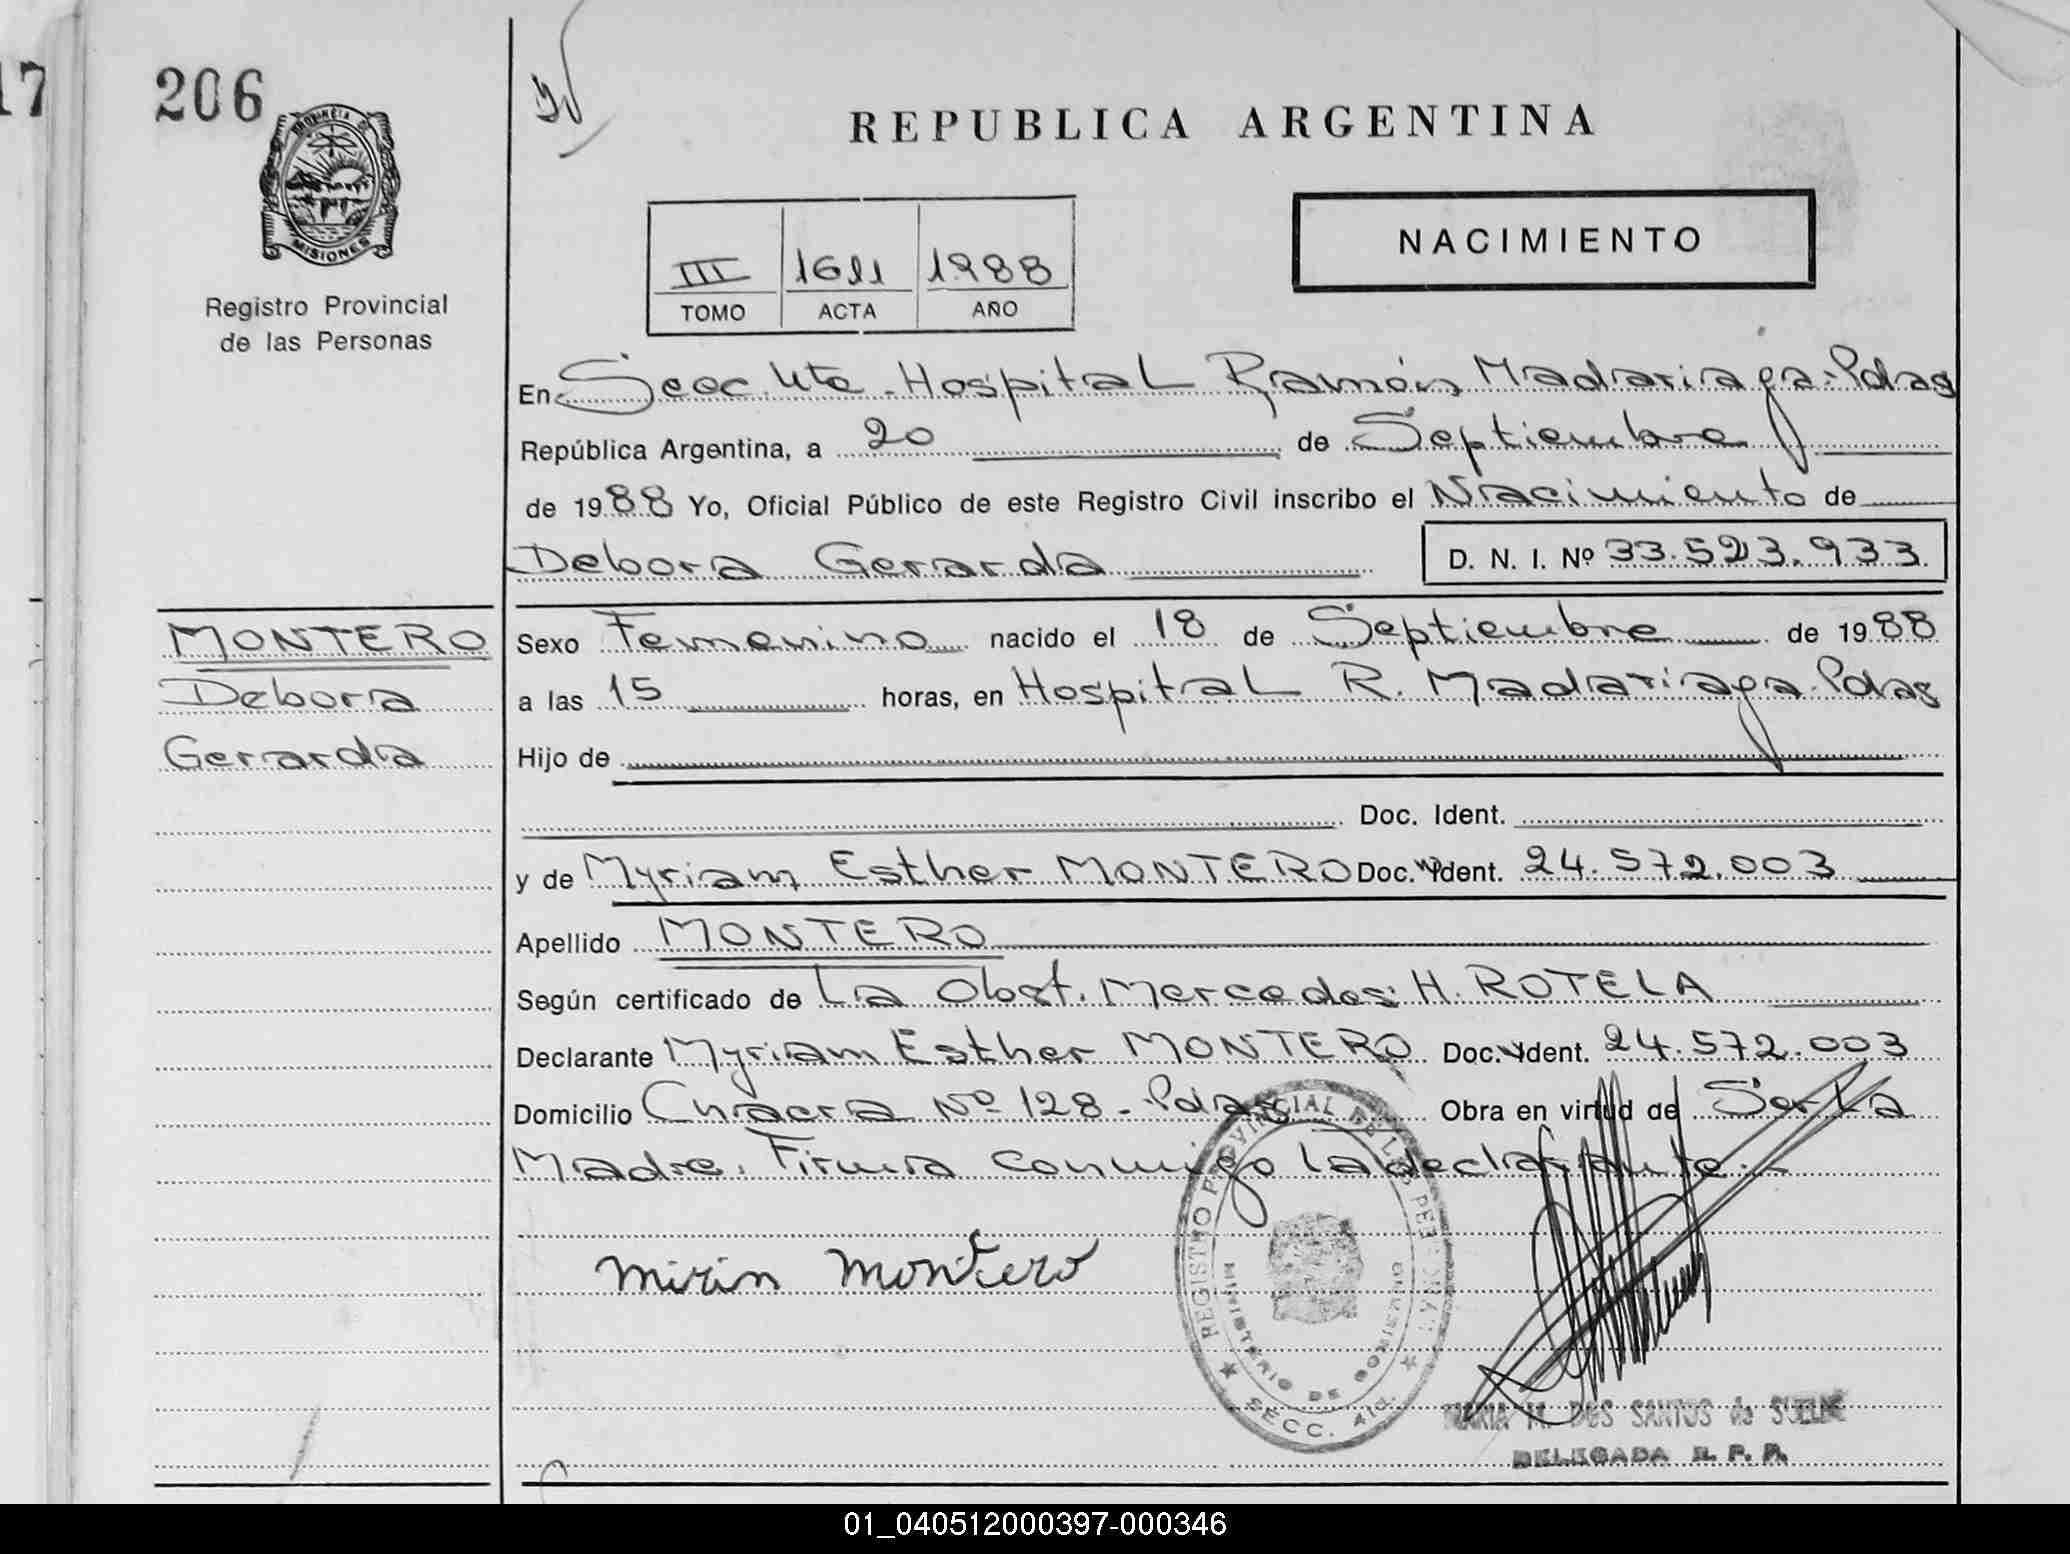 17
206
PROVINCIA DE
MISIONES
Registro Provincial
de las Personas
REPUBLICA ARGENTINA
III 1611 1988
TOMO ACTA AÑO
NACIMIENTO
En Secc. 4ta. Hospital Ramón Madariaga. Pdas
República Argentina, a 20 de Septiembre
de 1988 Yo, Oficial Público de este Registro Civil inscribo el Nacimiento de
Debora Gerarda D. N. I. Nº 33.523.933
MONTERO
Debora
Gerarda
Sexo Femenino nacido el 18 de Septiembre de 1988
a las 15 horas, en Hospital R. Madariaga. Pdas
Hijo de
Doc. Ident.
y de Myriam Esther MONTERO Doc. Ident. 24.572.003
Apellido MONTERO
Según certificado de La Obst. Mercedes H. ROTELA
Declarante Myriam Esther MONTERO Doc. Ident. 24.572.003
Domicilio Chacra Nº 128 - Pdas Obra en virtud de Ser La
Madre. Firma conmigo la declarante.-
Mirin Montero
REGISTRO PROVINCIAL DE LAS PERSONAS
MINISTERIO DE GOBIERNO
SECC. 4ta.
MARIA M. DOS SANTOS de
DELEGADA R. P. P.
01_040512000397-000346